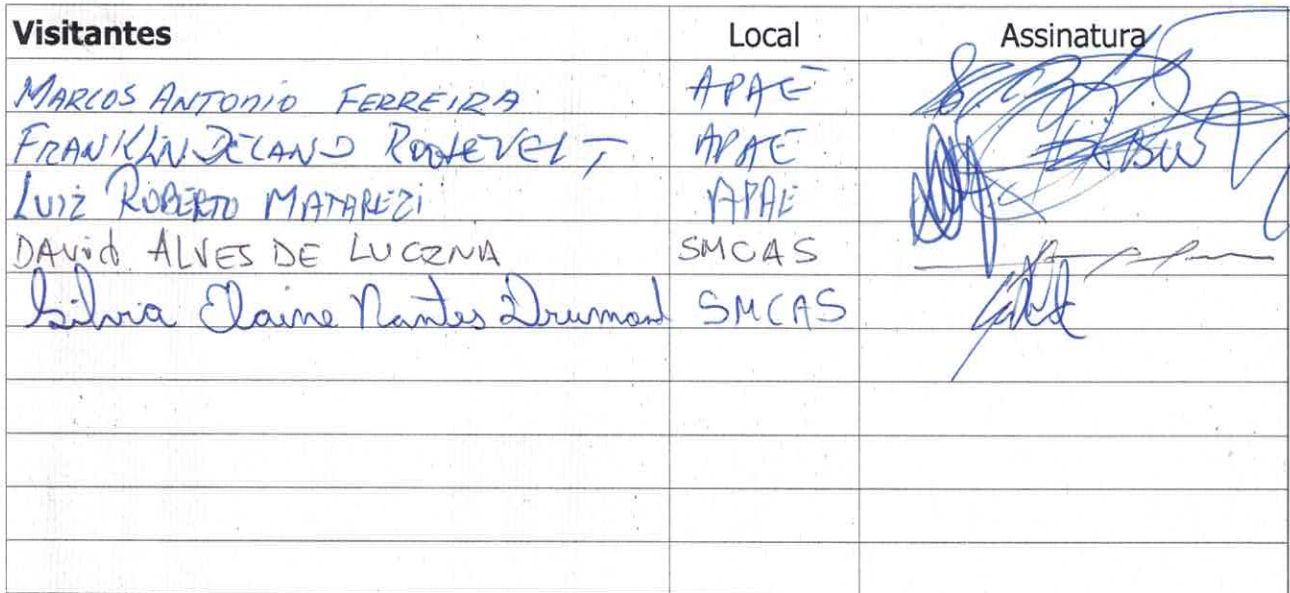 Visitantes Local Assinatura
MARCOS ANTONIO FERREIRA APAE
FRANKLIN DELANO ROOSEVELT APAE
LUIZ ROBERTO MATAREZI APAE
DAVID ALVES DE SMCAS
Silvia Elaine Nantes Drumond SMCAS